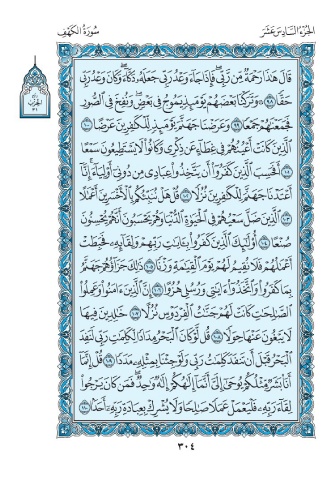 الجزء السادس عشر
سورة الكهف
قَالَ هَٰذَا رَحْمَةٌ مِّن رَّبِّي ۖ فَإِذَا جَاءَ وَعْدُ رَبِّي جَعَلَهُ دَكَّاءَ ۖ وَكَانَ وَعْدُ رَبِّي
حَقًّا ٩٨ ۞ وَتَرَكْنَا بَعْضَهُمْ يَوْمَئِذٍ يَمُوجُ فِي بَعْضٍ ۖ وَنُفِخَ فِي الصُّورِ
فَجَمَعْنَاهُمْ جَمْعًا ٩٩ وَعَرَضْنَا جَهَنَّمَ يَوْمَئِذٍ لِّلْكَافِرِينَ عَرْضًا ١٠٠
الَّذِينَ كَانَتْ أَعْيُنُهُمْ فِي غِطَاءٍ عَن ذِكْرِي وَكَانُوا لَا يَسْتَطِيعُونَ سَمْعًا
١٠١ أَفَحَسِبَ الَّذِينَ كَفَرُوا أَن يَتَّخِذُوا عِبَادِي مِن دُونِي أَوْلِيَاءَ ۚ إِنَّا
أَعْتَدْنَا جَهَنَّمَ لِلْكَافِرِينَ نُزُلًا ١٠٢ قُلْ هَلْ نُنَبِّئُكُم بِالْأَخْسَرِينَ أَعْمَالًا
١٠٣ الَّذِينَ ضَلَّ سَعْيُهُمْ فِي الْحَيَاةِ الدُّنْيَا وَهُمْ يَحْسَبُونَ أَنَّهُمْ يُحْسِنُونَ
صُنْعًا ١٠٤ أُولَٰئِكَ الَّذِينَ كَفَرُوا بِآيَاتِ رَبِّهِمْ وَلِقَائِهِ فَحَبِطَتْ
أَعْمَالُهُمْ فَلَا نُقِيمُ لَهُمْ يَوْمَ الْقِيَامَةِ وَزْنًا ١٠٥ ذَٰلِكَ جَزَاؤُهُمْ جَهَنَّمُ
بِمَا كَفَرُوا وَاتَّخَذُوا آيَاتِي وَرُسُلِي هُزُوًا ١٠٦ إِنَّ الَّذِينَ آمَنُوا وَعَمِلُوا
الصَّالِحَاتِ كَانَتْ لَهُمْ جَنَّاتُ الْفِرْدَوْسِ نُزُلًا ١٠٧ خَالِدِينَ فِيهَا
لَا يَبْغُونَ عَنْهَا حِوَلًا ١٠٨ قُل لَّوْ كَانَ الْبَحْرُ مِدَادًا لِّكَلِمَاتِ رَبِّي لَنَفِدَ
الْبَحْرُ قَبْلَ أَن تَنفَدَ كَلِمَاتُ رَبِّي وَلَوْ جِئْنَا بِمِثْلِهِ مَدَدًا ١٠٩ قُلْ إِنَّمَا
أَنَا بَشَرٌ مِّثْلُكُمْ يُوحَىٰ إِلَيَّ أَنَّمَا إِلَٰهُكُمْ إِلَٰهٌ وَاحِدٌ ۖ فَمَن كَانَ يَرْجُو
لِقَاءَ رَبِّهِ فَلْيَعْمَلْ عَمَلًا صَالِحًا وَلَا يُشْرِكْ بِعِبَادَةِ رَبِّهِ أَحَدًا ١١٠
٣٠٤